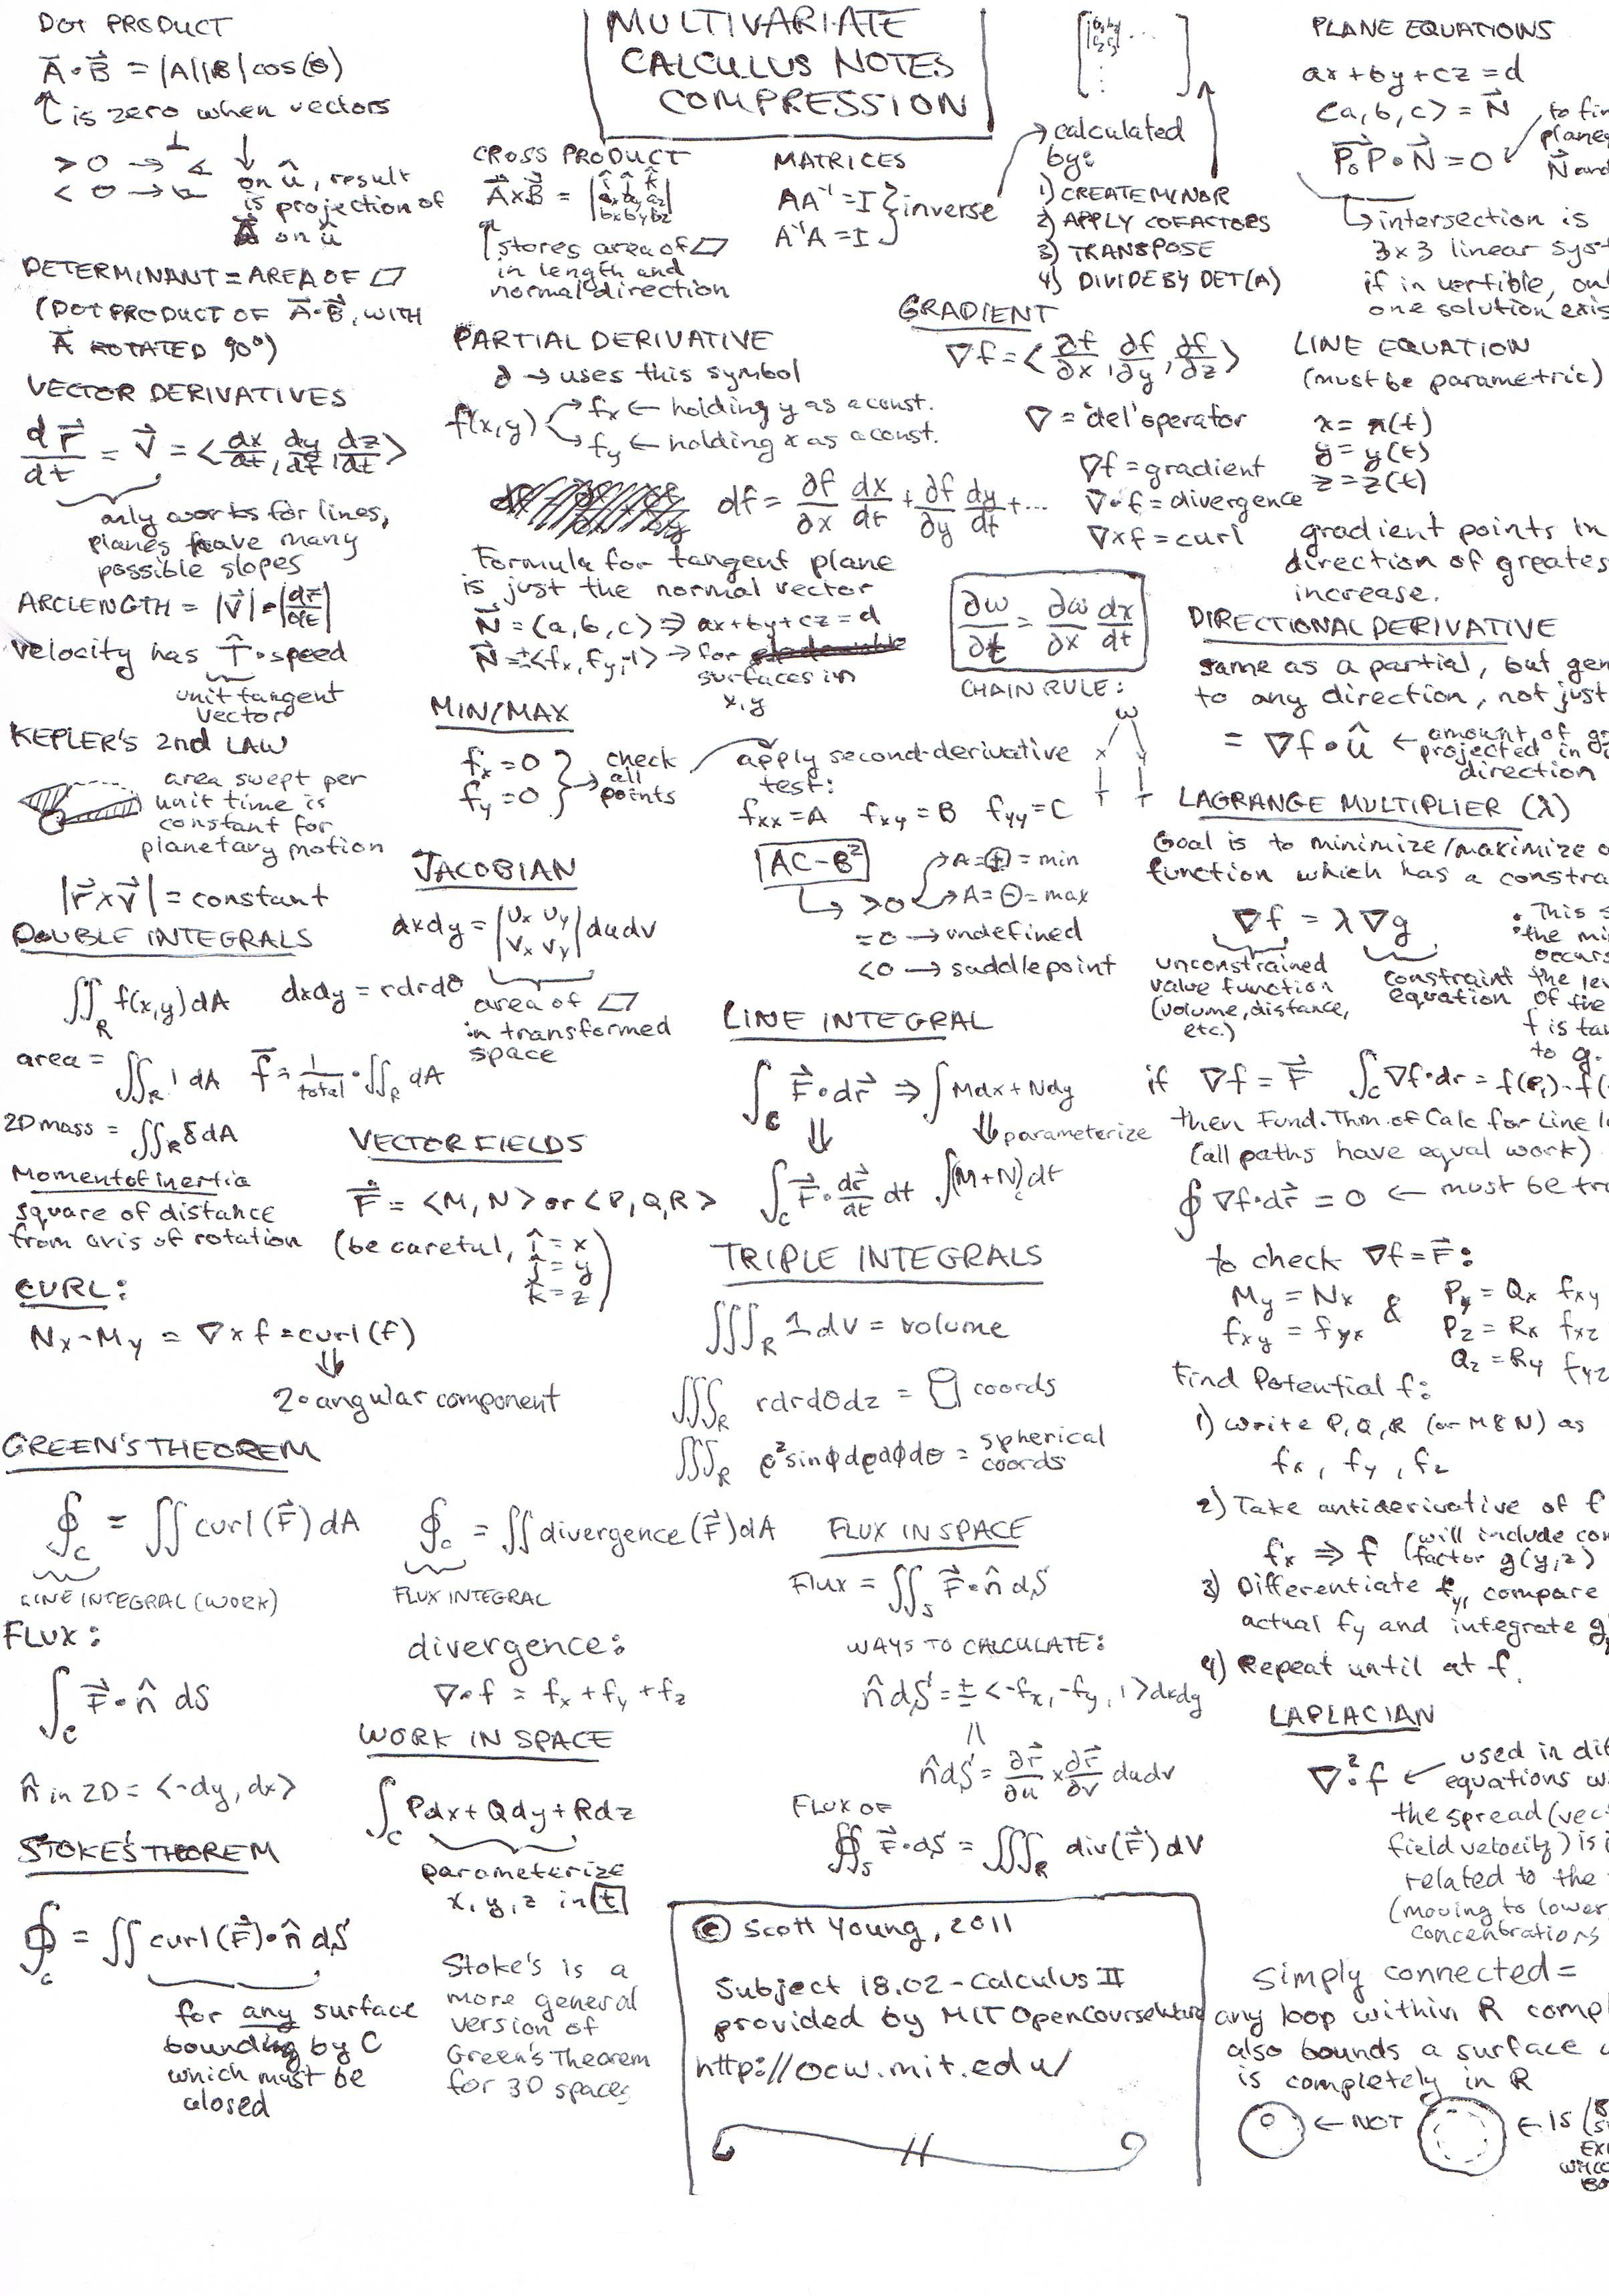 MULTIVARIATE
CALCULUS NOTES
COMPRESSION
DOT PRODUCT
A⃗·B⃗ = |A||B|cos(θ)
is zero when vectors
⊥
> 0 →
< 0 →
on û, result
is projection of
A⃗ on û
DETERMINANT = AREA OF ▱
(DOT PRODUCT OF A⃗·B⃗, WITH
A⃗ ROTATED 90°)
VECTOR DERIVATIVES
dr⃗/dt = v⃗ = <dx/dt, dy/dt, dz/dt>
only works for lines,
planes have many
possible slopes
ARCLENGTH = |v⃗| = |dr⃗/dt|
velocity has T̂·speed
unit tangent
vector
KEPLER'S 2nd LAW
area swept per
unit time is
constant for
planetary motion
|r⃗ x v⃗| = constant
DOUBLE INTEGRALS
∬R f(x,y)dA dxdy = rdrdθ
area = ∬R 1 dA f̄ = 1/total · ∬R dA
2D mass = ∬R δ dA
Moment of inertia
square of distance
from axis of rotation
CURL:
Nx - My = ∇ x f = curl(f)
⇓
2·angular component
GREEN'S THEOREM
∮c = ∬ curl(F⃗)dA
LINE INTEGRAL (WORK)
∮c = ∬ divergence(F⃗)dA
FLUX INTEGRAL
FLUX:
∫c F⃗·n̂ ds
n̂ in 2D = <-dy, dx>
STOKE'S THEOREM
∮c = ∬ curl(F⃗)·n̂ dS
for any surface
bounding by C
which must be
closed
CROSS PRODUCT
A⃗xB⃗ = |î ĵ k̂|
|ax ay az|
|bx by bz|
stores area of ▱
in length and
normal direction
MATRICES
AA⁻¹ = I
A⁻¹A = I
} inverse
calculated
by:
1) CREATE MINOR
2) APPLY COFACTORS
3) TRANSPOSE
4) DIVIDE BY DET(A)
PARTIAL DERIVATIVE
∂ → uses this symbol
f(x,y)
fx ← holding y as a const.
fy ← holding x as a const.
df = ∂f/∂x dx/dt + ∂f/∂y dy/dt + ...
Formula for tangent plane
is just the normal vector
N⃗ = <a, b, c> ⇒ ax+by+cz = d
N⃗ = ±<fx, fy, -1> → for
surfaces in
x,y
MIN/MAX
fx = 0
fy = 0
} → check
all
points
apply second-derivative
test:
fxx = A fxy = B fyy = C
AC - B²
> 0
A = ⊕ = min
A = ⊖ = max
= 0 → undefined
< 0 → saddle point
JACOBIAN
dxdy = |ux uy|
|vx vy| dudv
area of ▱
in transformed
space
VECTOR FIELDS
F⃗ = <M, N> or <P, Q, R>
(be careful, î = x
ĵ = y
k̂ = z)
divergence:
∇·f = fx + fy + fz
WORK IN SPACE
∫c Pdx + Qdy + Rdz
parameterize
x, y, z in t
Stoke's is a
more general
version of
Green's Theorem
for 3D spaces
GRADIENT
∇f = <∂f/∂x, ∂f/∂y, ∂f/∂z>
∇ = 'del' operator
∇f = gradient
∇·f = divergence
∇xf = curl
∂w/∂t = ∂w/∂x dx/dt
CHAIN RULE:
w
x y
t t
LINE INTEGRAL
∫c F⃗·dr⃗ ⇒ ∫Mdx+Ndy
⇓ ⇓ parameterize
∫c F⃗·dr⃗/dt dt ∫c(M+N)dt
TRIPLE INTEGRALS
∭R 1 dV = volume
∭R rdrdθdz = coords
∭R ρ²sinϕdρdϕdθ = spherical
coords
FLUX IN SPACE
Flux = ∬S F⃗·n̂ dS
WAYS TO CALCULATE:
n̂ dS = ± <-fx, -fy, 1> dxdy
n̂ dS = ∂r⃗/∂u x ∂r⃗/∂v dudv
FLUX OF
∯S F⃗·dS = ∭R div(F⃗)dV
© Scott Young, 2011
Subject 18.02 - Calculus II
provided by MIT OpenCourseWare
http://ocw.mit.edu/
PLANE EQUATIONS
ax + by + cz = d
<a, b, c> = N⃗
P₀P⃗·N⃗ = 0
to
N⃗ and
intersection is
3x3 linear
if invertible,
one solution
LINE EQUATION
(must be parametric)
x = x(t)
y = y(t)
z = z(t)
gradient points in
direction of
increase.
DIRECTIONAL DERIVATIVE
same as a partial, but
to any direction, not just
= ∇f·û ← amount of
projected in
direction
LAGRANGE MULTIPLIER (λ)
Goal is to minimize/maximize
function which has a
∇f = λ∇g
unconstrained
value function
(volume, distance,
etc.)
constraint
equation
• This
• the
occurs
the
of the
f is
to g.
if ∇f = F⃗ ∫c ∇f·dr = f(P₁) -
then Fund. Thm. of Calc for Line
(all paths have equal work)
∮ ∇f·dr⃗ = 0 ← must be
to check ∇f = F⃗:
My = Nx & Py = Qx fxy
fxy = fyx Pz = Rx fxz
Qz = Ry fyz
Find Potential f:
1) Write P, Q, R (or M & N) as
fx, fy, fz
2) Take antiderivative of f
fx ⇒ f (will include
factor g(y,z)
3) Differentiate fy, compare
actual fy and integrate
4) Repeat until at f.
LAPLACIAN
∇²·f ← used in
equations
the spread
field velocity) is
related to the
(moving to lower
concentrations
Simply connected =
any loop within R
also bounds a surface
is completely in R
← NOT
← IS